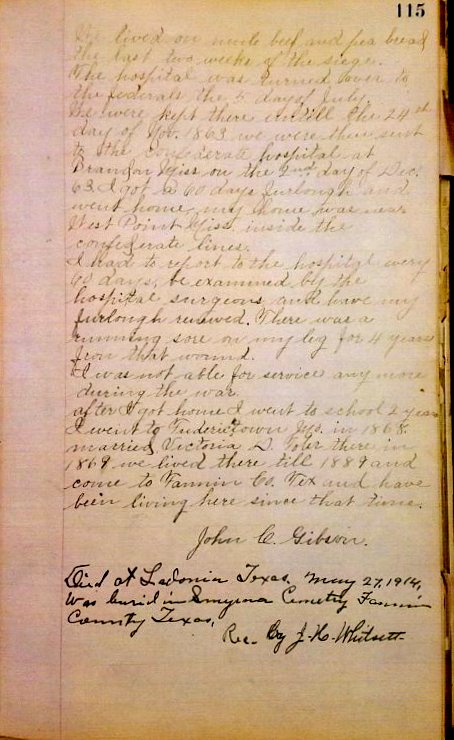 115
We lived on mule beef and pea bread
the last two weeks of the siege.
The hospital was turned over to
the federals the 5 day of July.
We were kept there untill the 24th
day of Nov. 1863 we were then sent
to the confederate hospital at
Brandon Miss on the 2nd day of Dec.
63 I got a 60 days furlough and
went home, my home was near
West Point Miss. inside the
confederate lines.
I had to report to the hospital every
60 days, be examined by the
hospital surgeons and have my
furlough renewed. There was a
running sore on my leg for 4 years
from that wound.
I was not able for service any more
during the war.
after I got home I went to school 2 years
I went to in 1868
married Victoria D. there in
1869 we lived there till 1889 and
come to Fannin Co. Tex and have
been living here since that time.
John C. Gibson.
Died at Ladonia Texas. May 27, 1914,
Was burid in Smyrna Cemetry Fannin
County Texas.
Rec. By J. H. Whitsett